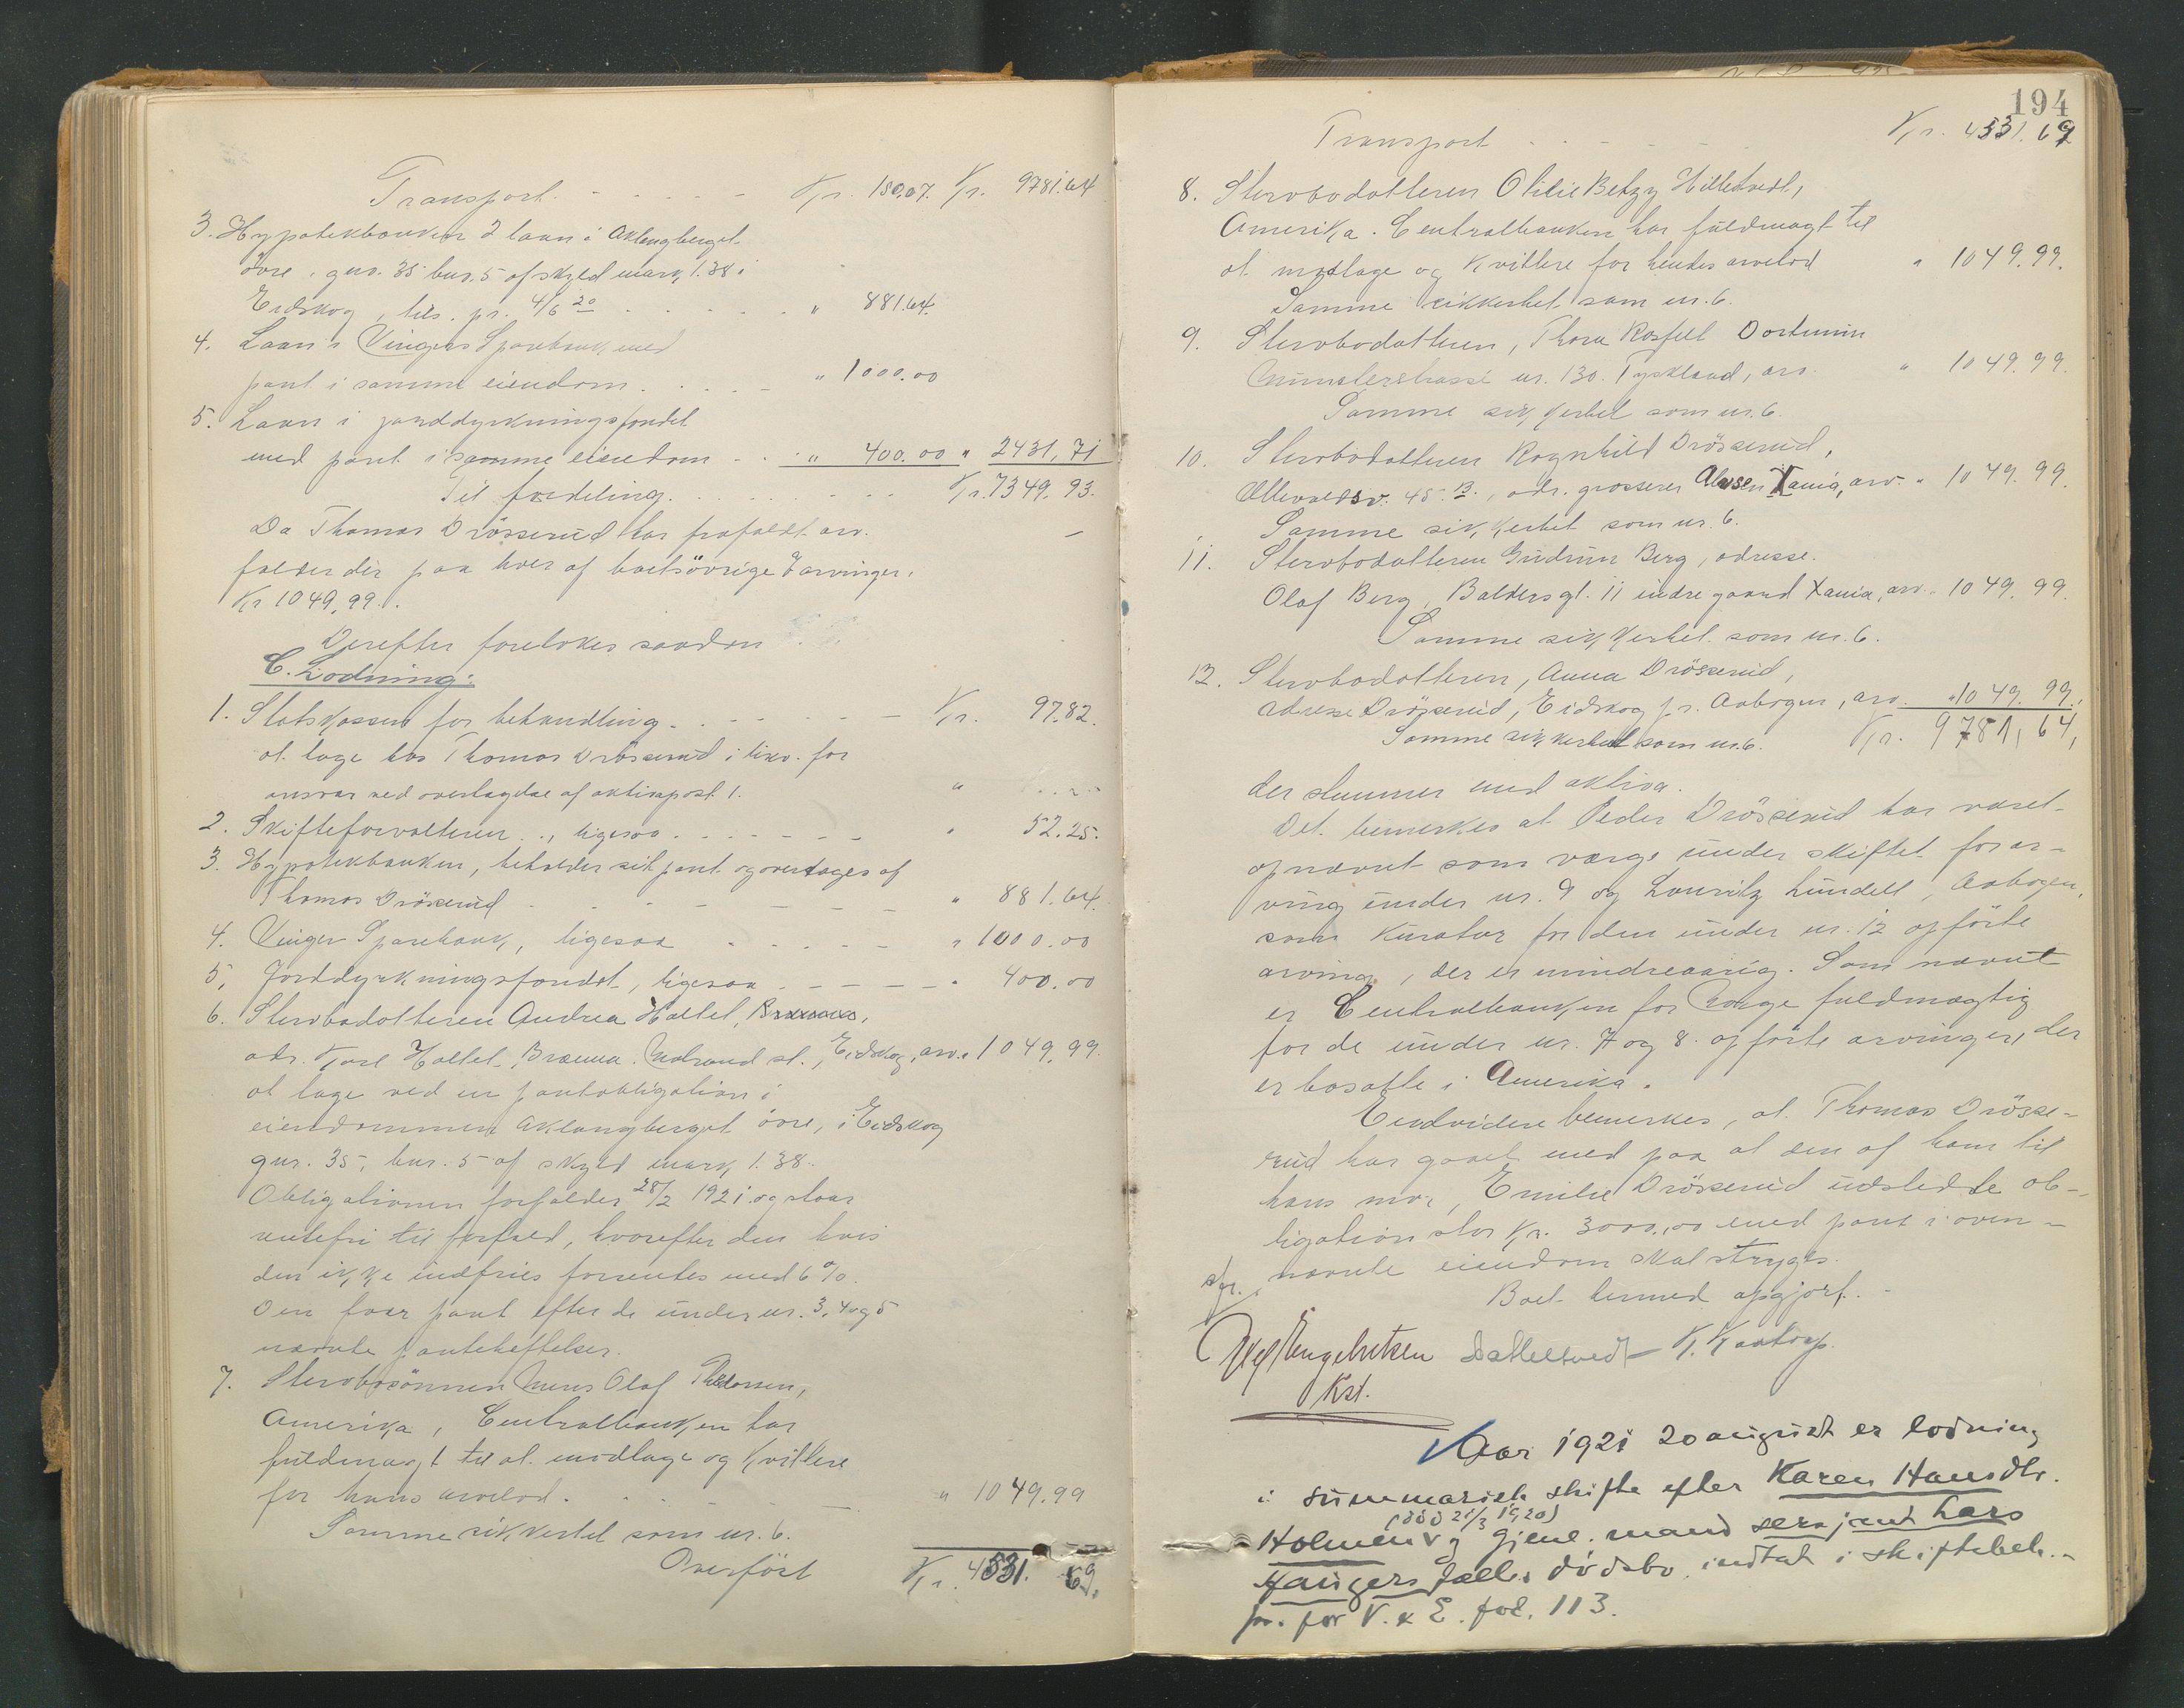 Transport. - - - - - Kr. 150.07. Kr. 9781.64
3. Hypotekbanken 2 laan i Aklangberget
övre, gnr. 35 bnr. 5 af skyld mark 1.38 i
Eidskog, tils. pr. 4/6 20 . . . . . " 881.64.
4. Laan i Vinger Sparebank med
pant i samme eiendom. . . . . " 1000.00
5. Laan i jorddyrkningsfondet
med pant i samme eiendom - . " 400.00 " 2431,71
Til fordeling. . . . . . . . Kr. 7349.93.
Da Thomas Drösserud har frafaldt arv.
falder der paa hver af boets övrige 7 arvinger.
Kr 1049,99..
Derefter foretokes saadan
C. Lodning:
1. Statskassen for behandling. - - - - - - Kr. 97.82.
at tage hos Thomas Drösserud i likv. for
ansvar ved overtagelse af aktivapost 1. "
2. Skifteforvalteren . ., ligesaa. - - - - - - " 52.25.
3. Hypotekbanken, beholder sit pant og overtages af
Thomas Drösserud - - - - - - - " 881.64.
4. Vinger Sparebank, ligesaa - - - - - " 1000.00
5. Jorddyrkningsfondet, ligesaa - - - - - " 400.00
6. Stervbodatteren Andrea Holtet,
adr. Karl Holtet, Brænna. Matrand st., Eidskog, arv. " 1049.99.
at tage ved en pantobligation i
eiendommen Aklangberget övre, i Eidskog
gnr. 35, bnr. 5 af skyld mark 1.38.
Obligationen forfalder 28/2 1921 og staar
rentefri til forfald, hvorefter den hvis
den ikke indfries forrentes med 6 %.
Den faar pant efter de under nr. 3, 4 og 5
nævnte panteheftelser.
7. Stervbosönnen Mens Olaf Pedersen,
Amerika, Centralbanken har
fuldmagt til at modtage og kvittere
for hans arvelod. . - - - - " 1049.99
Samme sikkerhet som nr. 6.
Overfört Kr. 4531. 69.
194
Transport - - - - - - Kr. 4531.69
8. Stervbodatteren Otilie Betzy Hilletvedt,
Amerika. Centralbanken har fuldmagt til
at modtage og kvittere for hendes arvelod " 1049.99.
Samme sikkerhet som nr. 6.
9. Stervbodatteren, Thora Rosfelt Dortmun
Münsterstrasse nr. 130. Tyskland, arv. " 1049.99.
Samme sikkerhet som nr. 6.
10. Stervbodatteren Ragnhild Drösserud,
Ullevoldsv. 45. B., adr. grosserer Olausen Xania, arv. " 1049.99.
Samme sikkerhet som nr. 6.
11. Stervbodatteren Gudrun Berg, adresse.
Olaf Berg, Baldersgt. 11 indre gaard Xania, arv. " 1049.99.
Samme sikkerhet som nr. 6.
12. Stervbodatteren, Anna Drösserud,
adresse Drösserud, Eidskog pr. Aabogen, arv. " 1049.99.
Samme sikkerhet som nr. 6. Kr. 9781,64,
der stemmer med aktiva.
Det bemerkes at Peder Drösserud har været
opnævnt som værge under skiftet for ar-
ving under nr. 9 og Lauritz Lundell, Aabogen,
som kurator for den under nr. 12 opförte
arving, der er mindreaarig. Som nævnt
er Centralbanken for Norge fuldmægtig
for de under nr. 7 og 8. opförte arvinger, der
er bosatte i Amerika.
Endvidere bemerkes, at Thomas Drösse-
rud har gaaet med paa at den af ham til
hans mor, Emilie Drösserud utstedte ob-
ligation stor Kr. 3000,00 med pant i oven-
nævnte eiendom skal stryges.
Boet hermed opgjort. -
Engebretsen K. Kaatorp.
Kst.
Aar 1921 20 august er lodning
i summarisk skifte efter Karen Hansdtr.
(död 21/3 1920)
Holmen og gjenl. mand sersjant Lars
Haugers fælles dödsbo indtat i skiftebeh.-
pr. for V. & E. fol. 113.